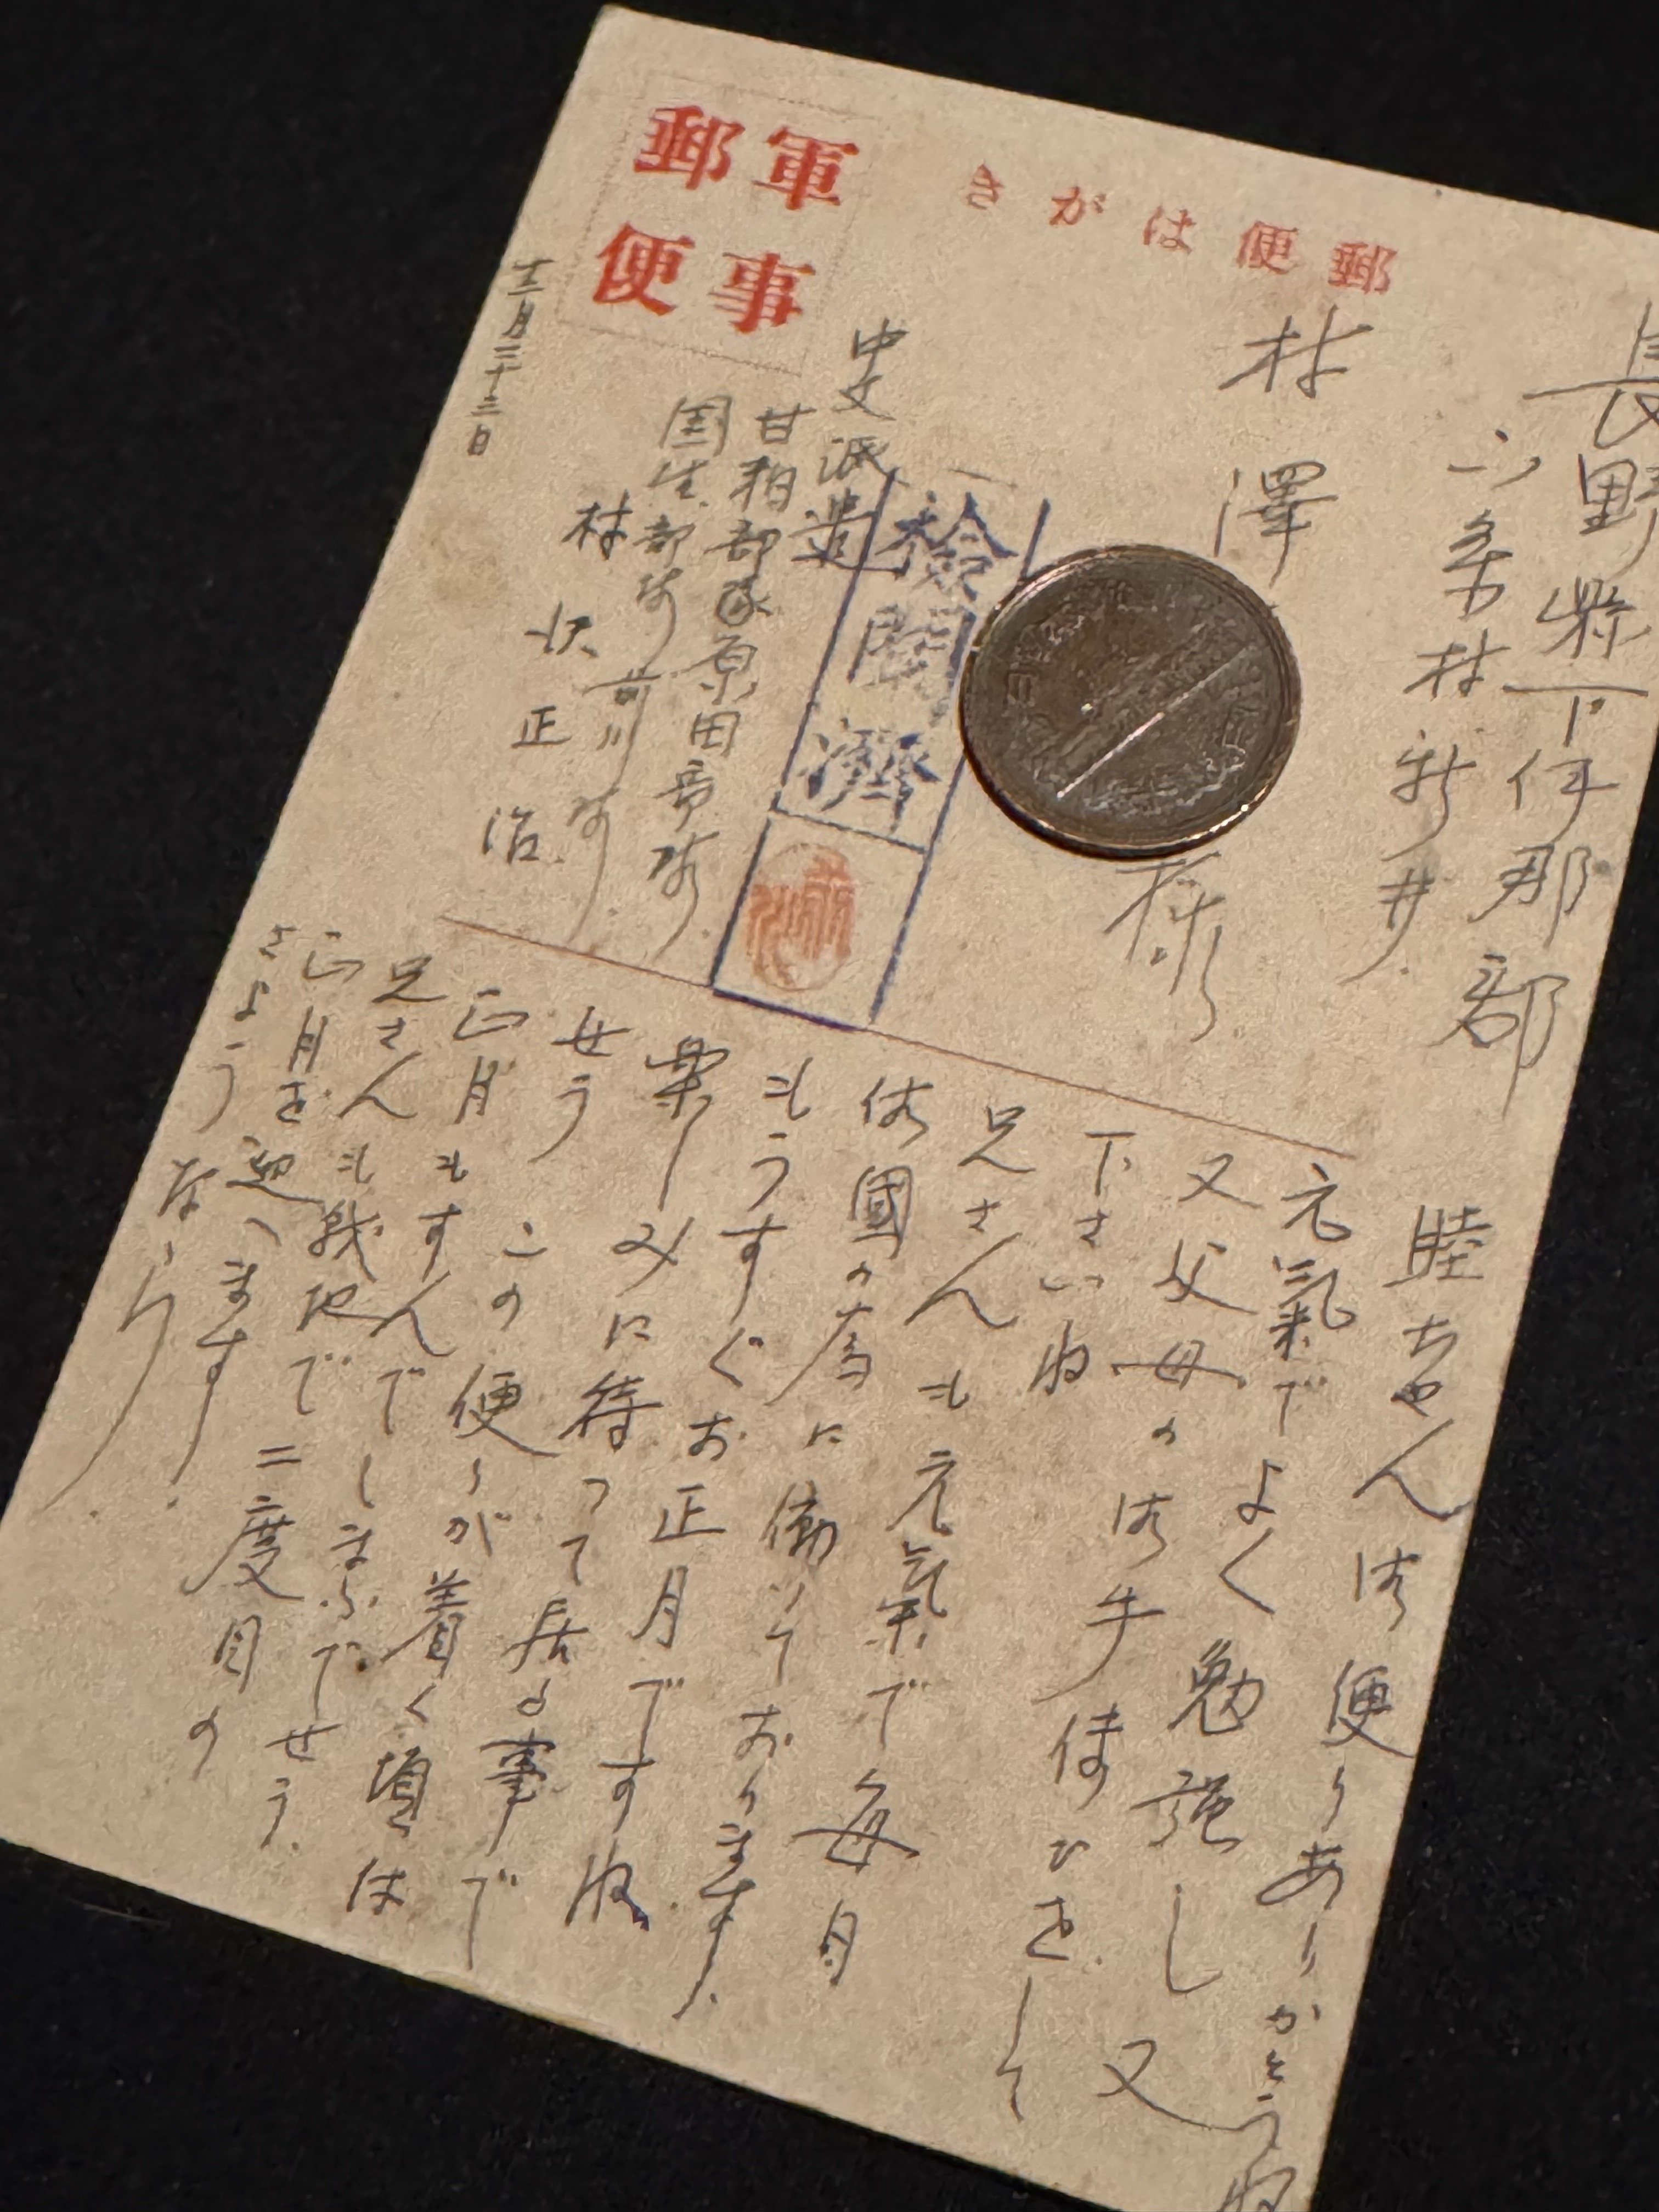 郵便はがき
軍事
郵便
長野縣下伊那郡
村新井
林 澤
様
検閲濟
中支派遣
甘粕部隊原田部隊
国生部隊前川隊
正治
十二月二十三日
睦ちゃんは便りありがとうね
元氣でよく勉強し又
又父母のは手傳ひをして
下さいね
兄さんも元氣で毎日
は國の為に働いております
もうすぐお正月ですね
楽しみに待って居る事で
せう この便りが着く頃は
正月もすんでしまふでせう
兄さんも戦地で二度目の
正月を迎へます
さようなら